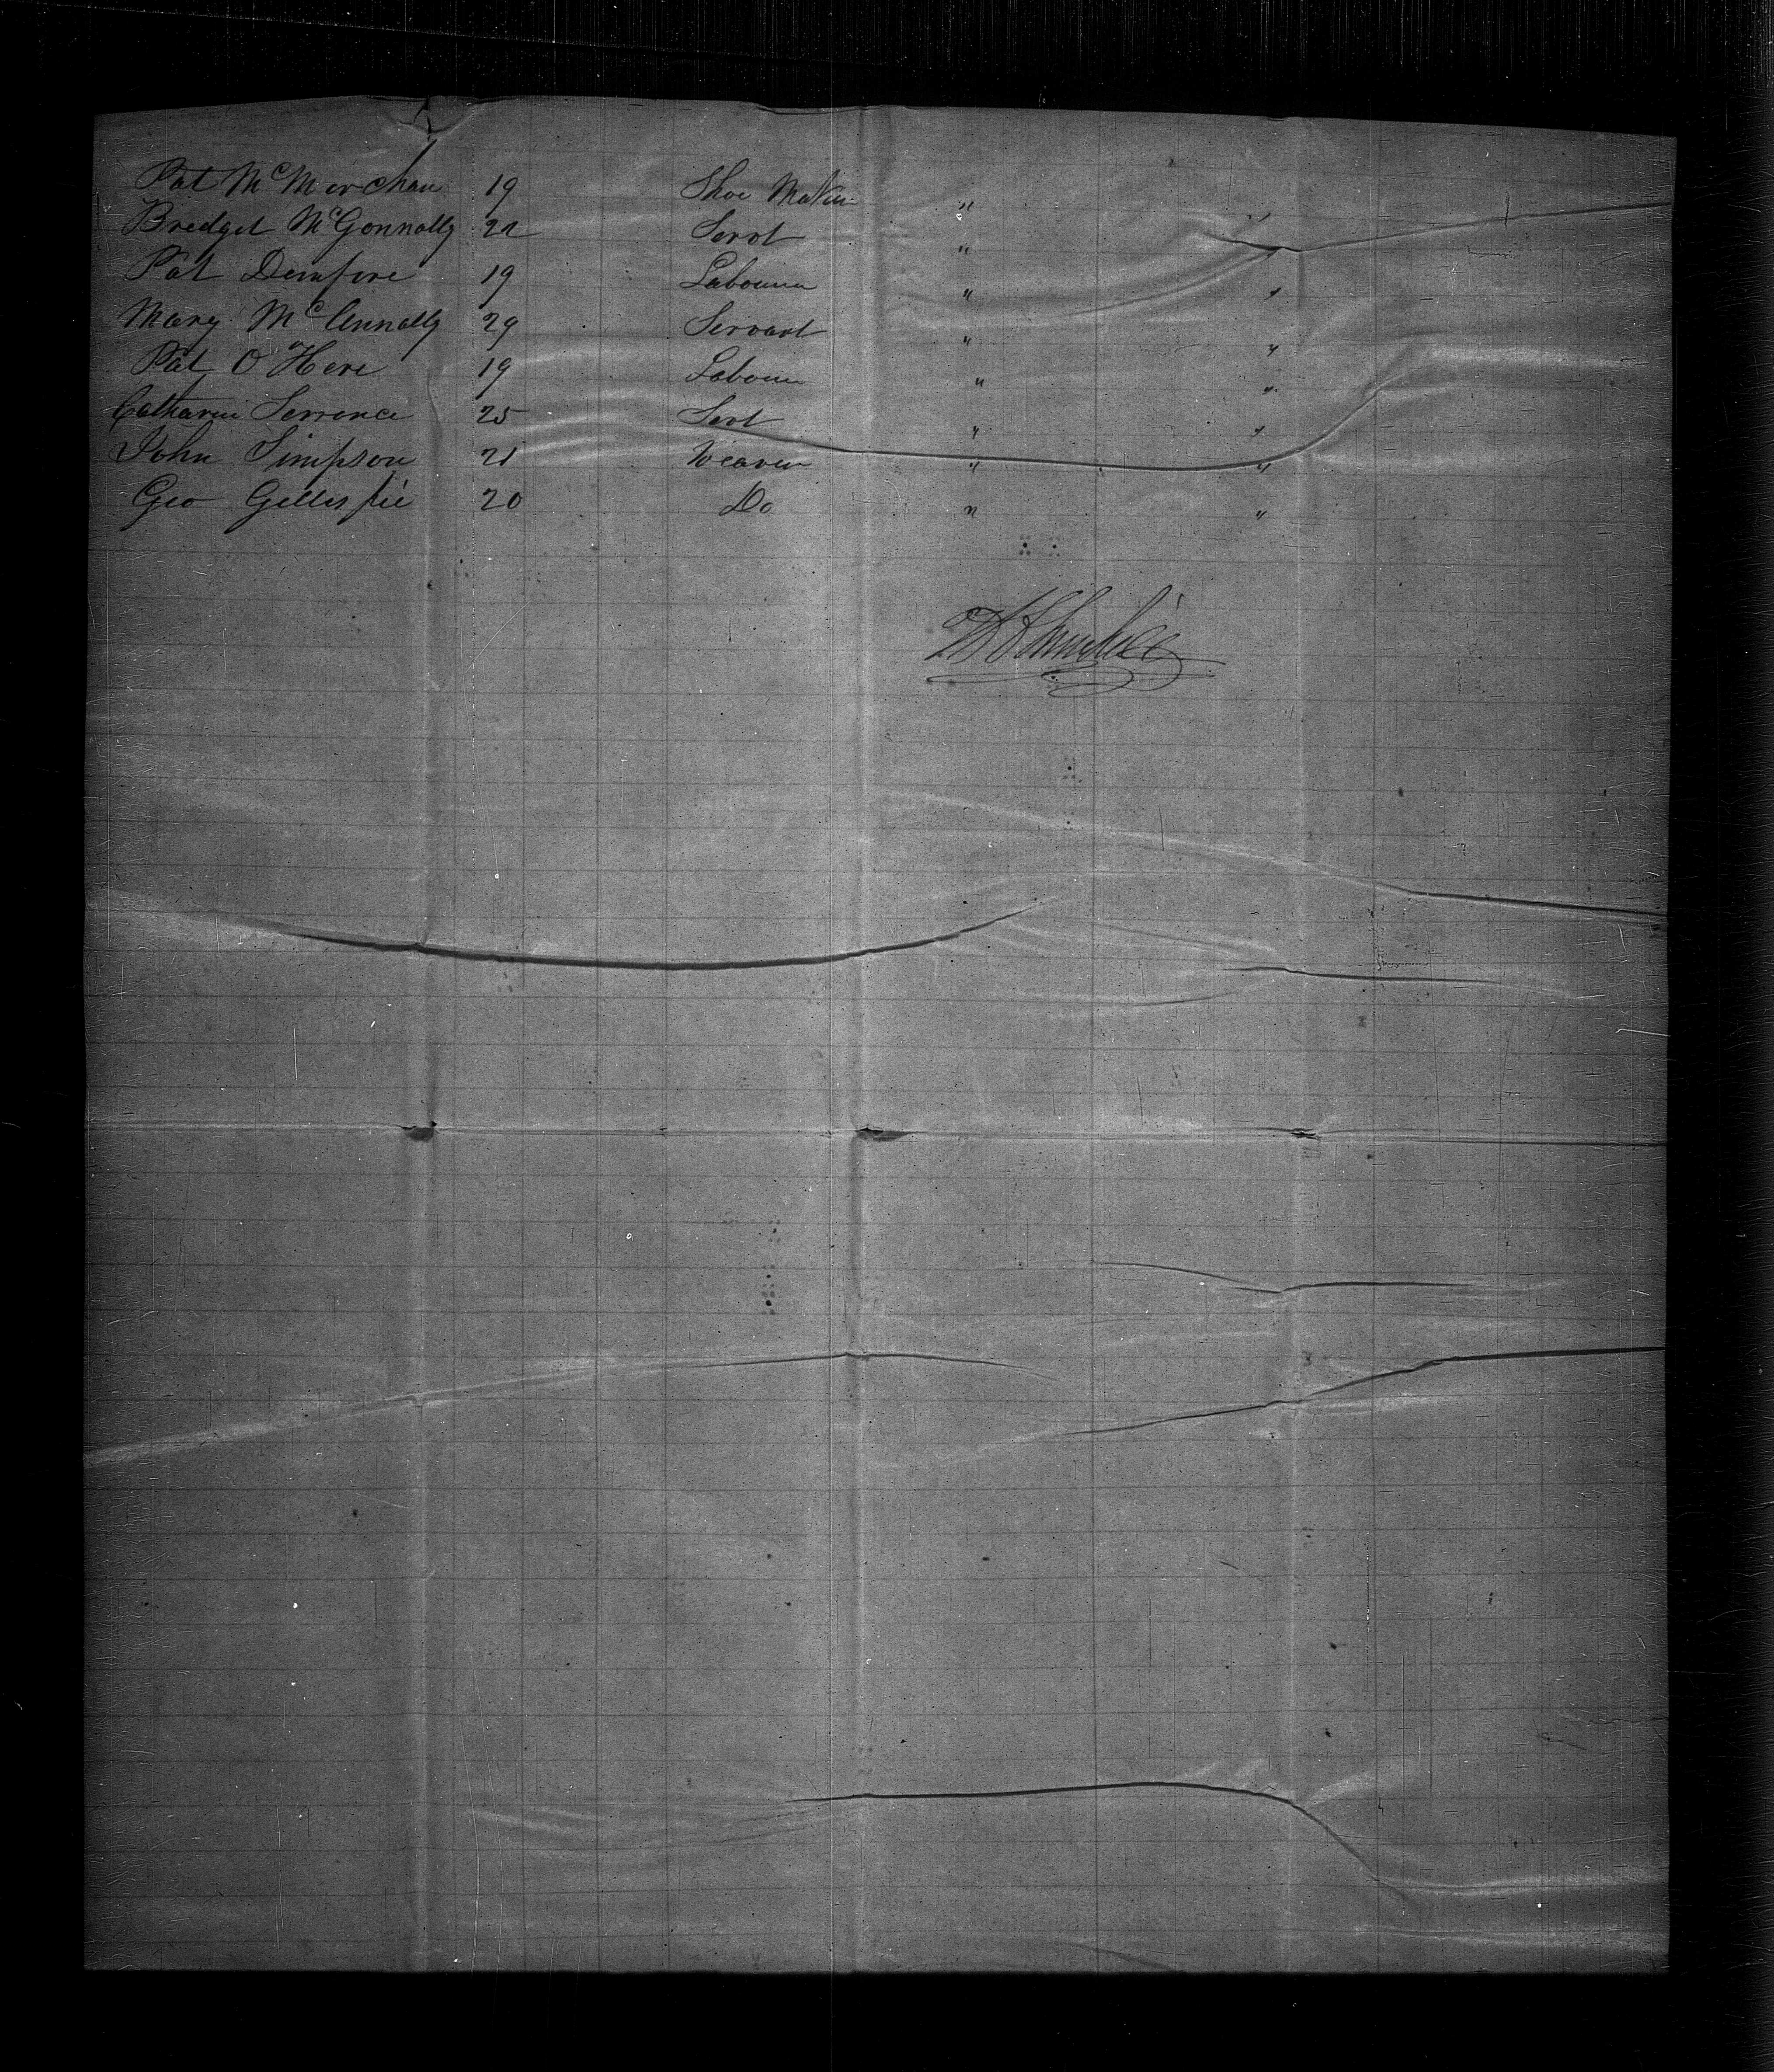 Pat McMerchan 19 Shoe Maker " "
Bredget McGonnolly 22 Servt " "
Pat 19 Labourer " "
Mary McAnnally 29 Servant " "
Pat O'Here 19 Labourer " "
Catharine Torrence 25 Servt " "
John Simpson 21 Weaver " "
Geo Gillespie 20 Do " "